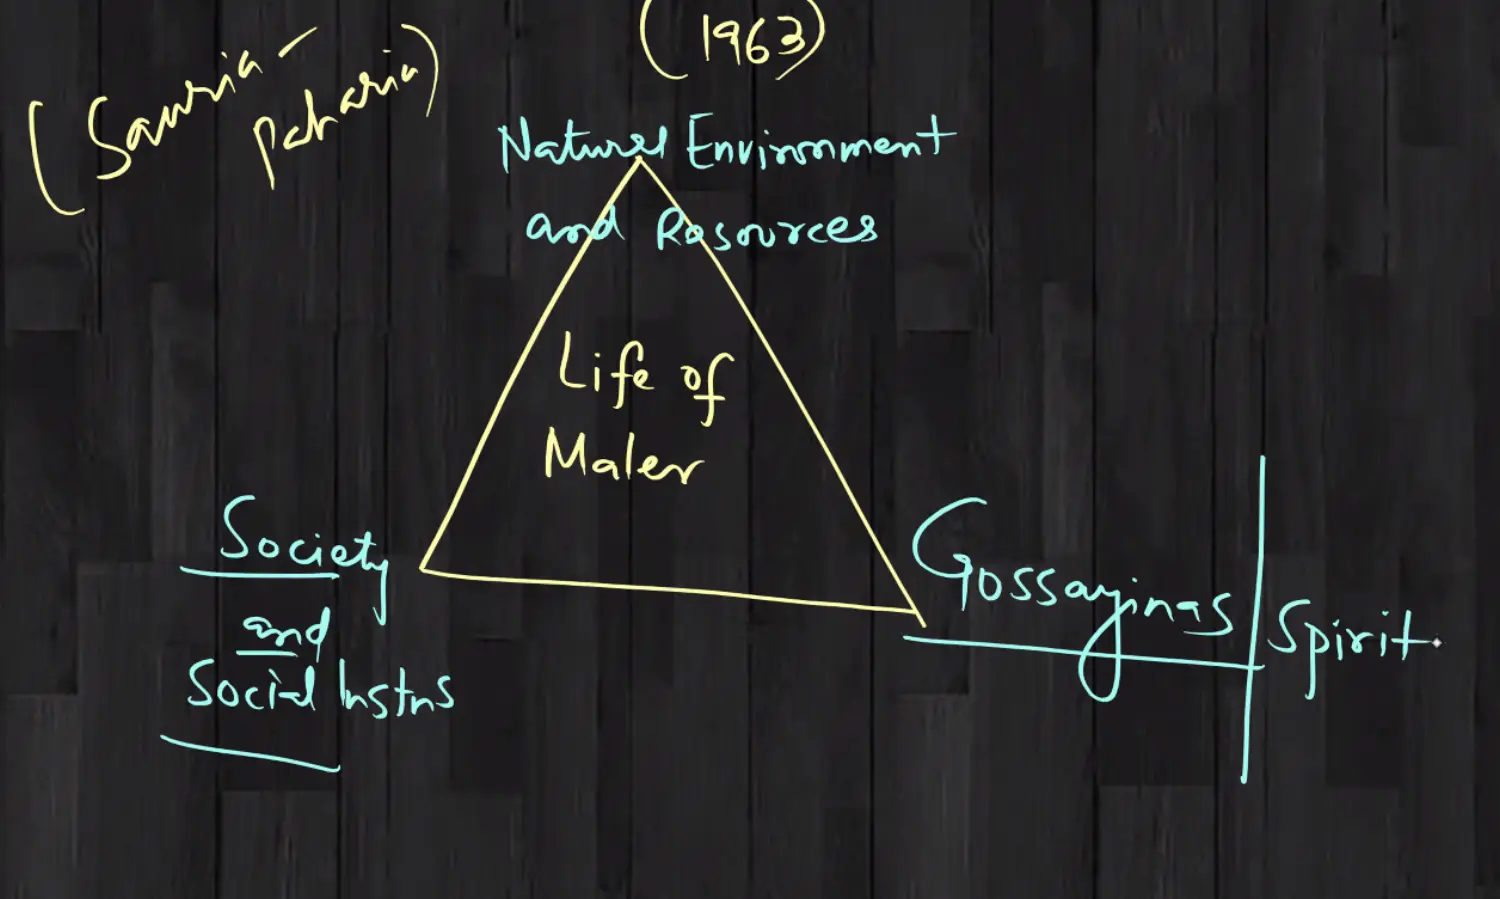 (1963)
(Sauria -
paharia)
Natural Environment
and Resources
Life of
Maler
Society
and
Social Instns
Gossayinas
Spirit